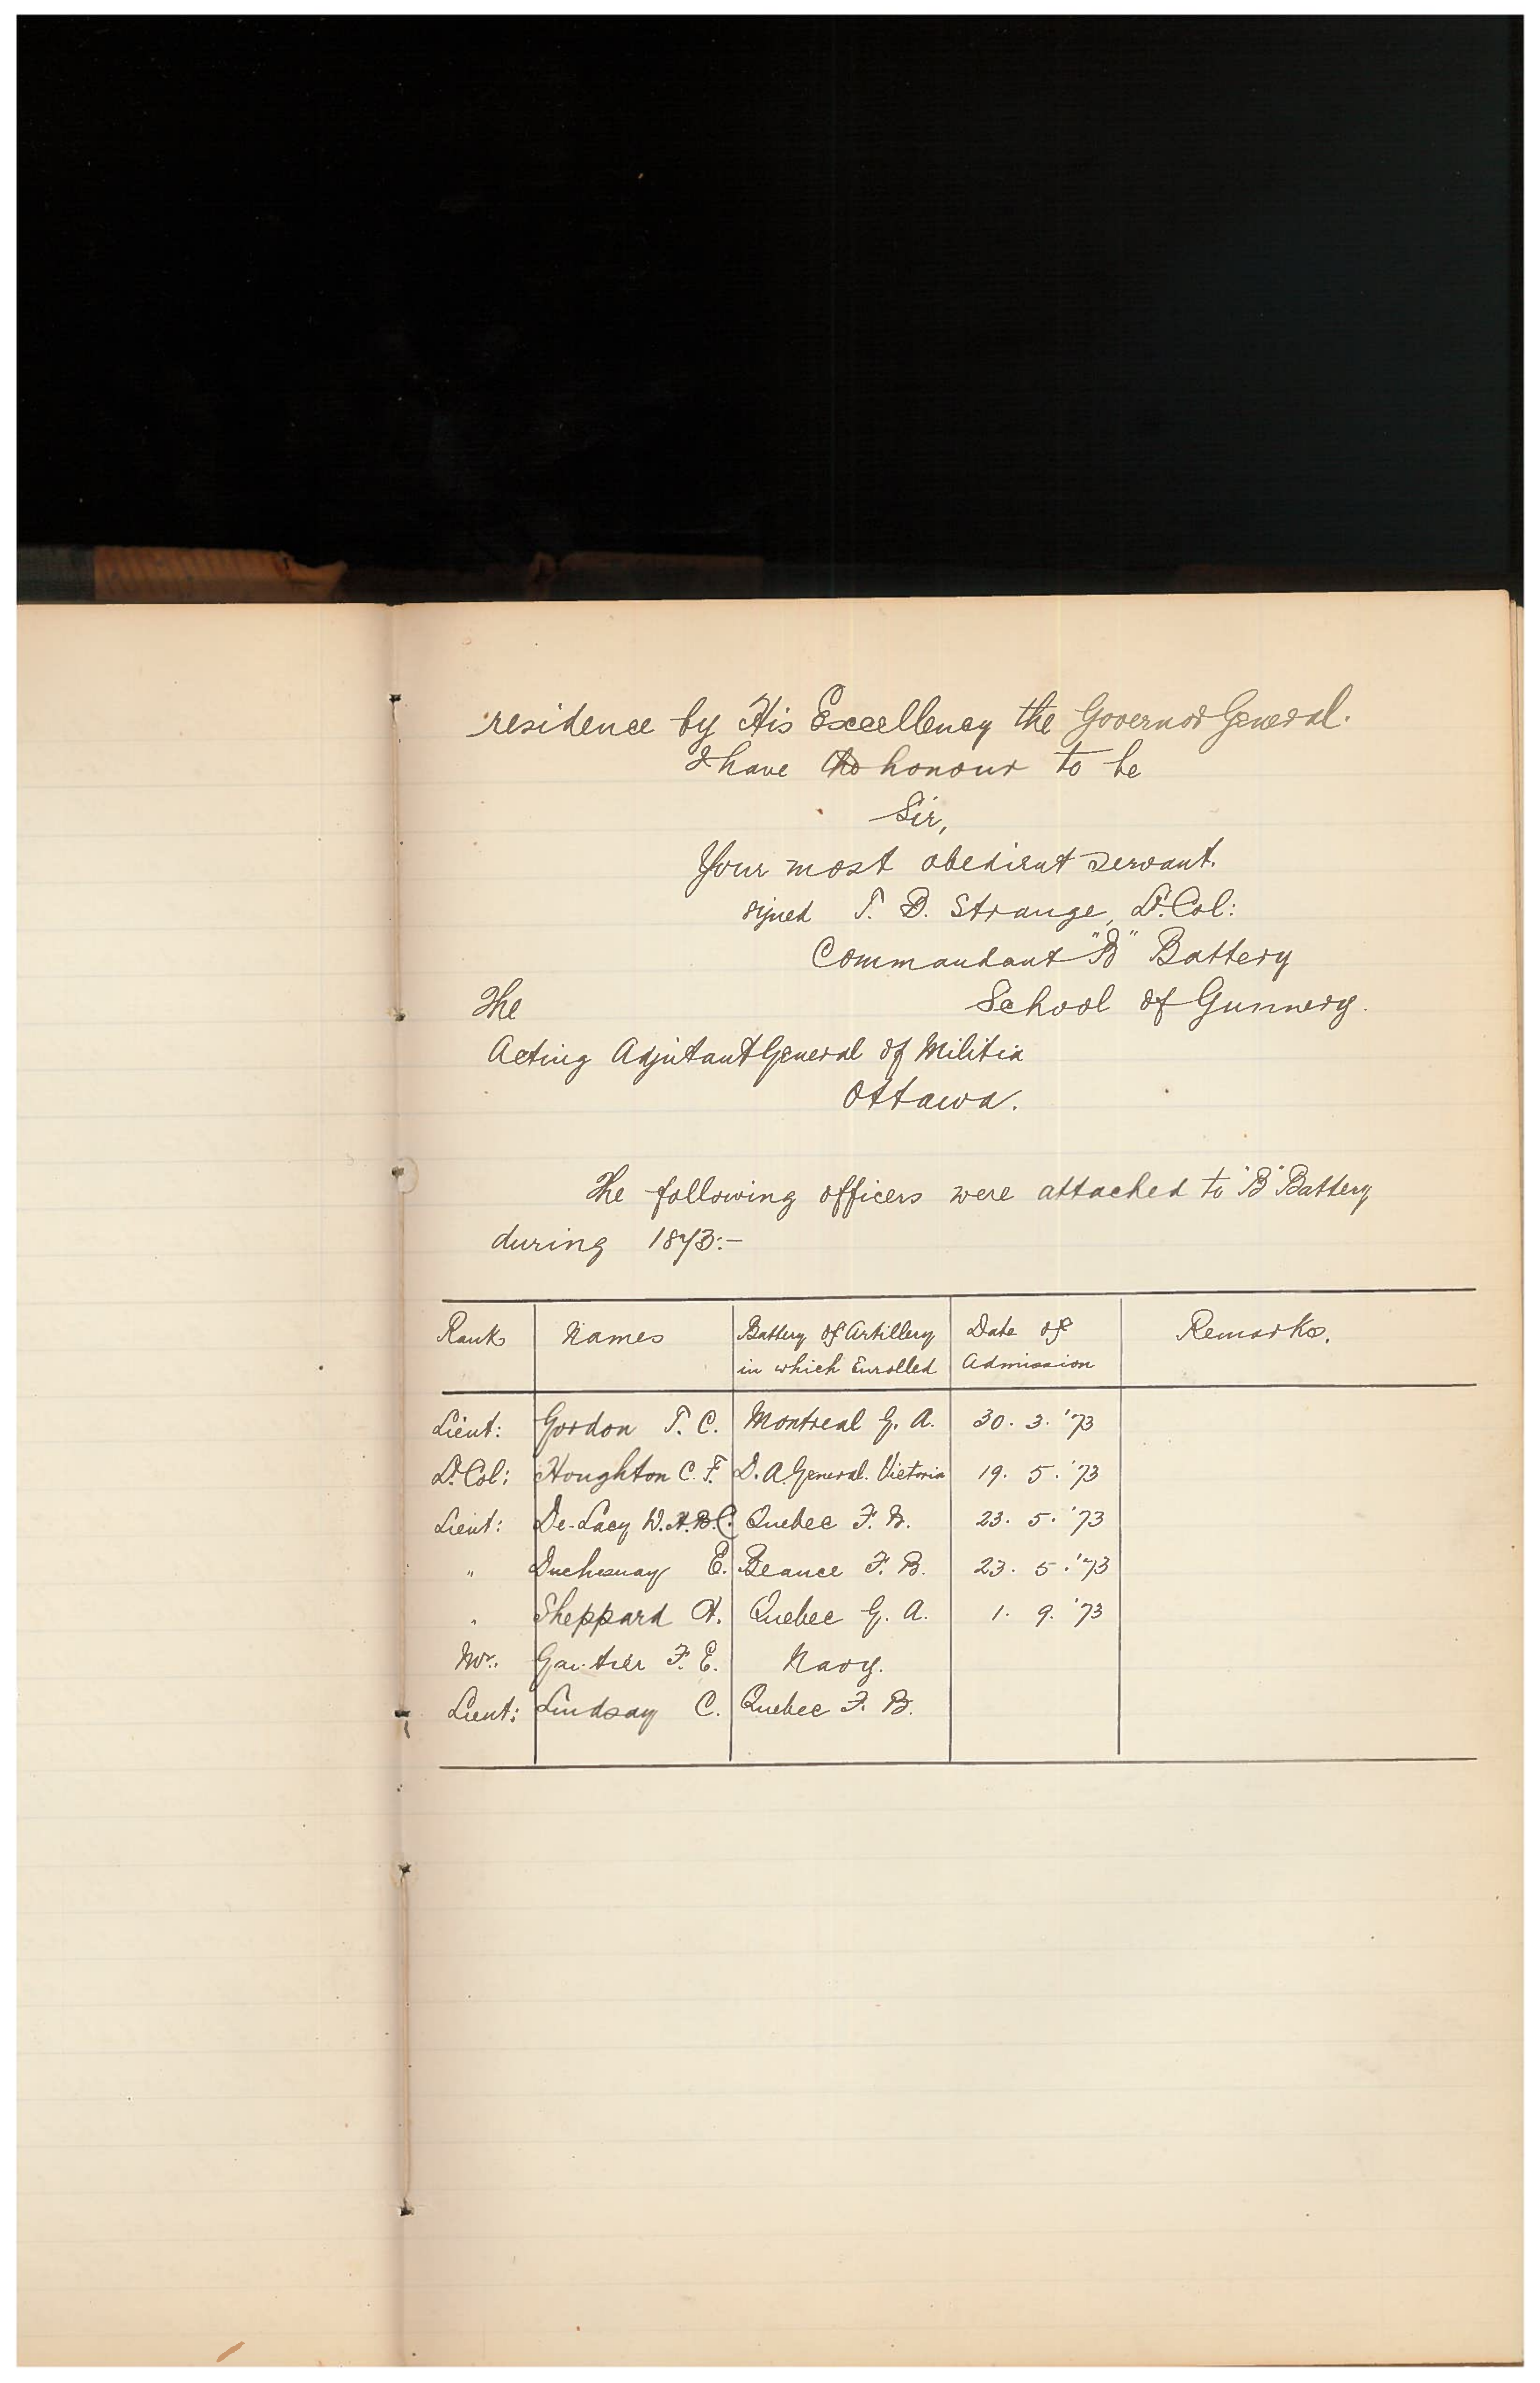 residence by His Excellency the Governor General.
I have the honour to be
Sir,
Your most obedient servant.
signed T. B. Strange, Lt. Col:
Commandant "B" Battery
The School of Gunnery.
Acting Adjutant General of Militia
Ottawa.
The following officers were attached to "B" Battery
during 1873:-
Rank Names Battery of Artillery in which Enrolled Date of Admission Remarks.
Lieut: Gordon T. C. Montreal G. A. 30. 3. '73
Lt. Col: Houghton C. F. D. A. General. Victoria 19. 5. '73
Lieut: De-Lacy W. H. B. C. Quebec F. B. 23. 5. '73
" Duchesnay E. Beauce F. B. 23. 5. '73
" Sheppard Quebec G. A. 1. 9. '73
Mr. Gautier F. E. Navy.
Lieut: Lindsay C. Quebec F. B.